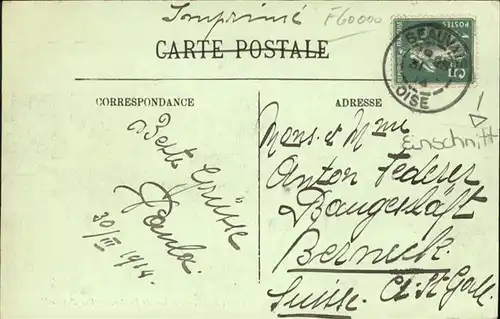 Imprimé
F60000
CARTE POSTALE
BEAUVAIS
OISE
POSTES
5
CORRESPONDANCE
ADRESSE
Einschnitt
Beste Grüsse
Paula.
30/III 1914.
Mons. et Mme
Anton Federer
Baugeschäft
Berneck.
Suisse. Ct. St. Gall.